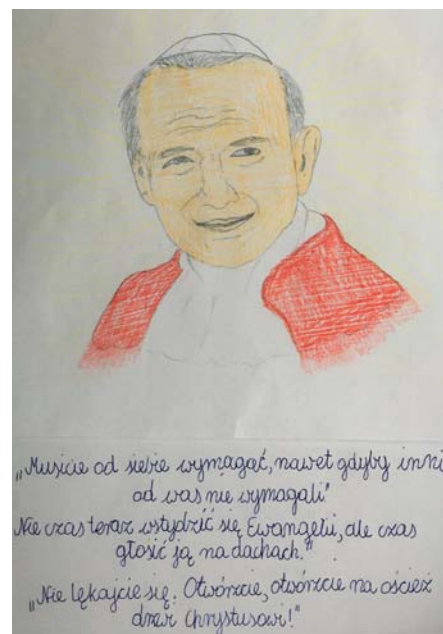 „Musicie od siebie wymagać, nawet gdyby inni
od was nie wymagali"
Nie czas teraz wstydzić się Ewangelii, ale czas
głosić ją na dachach."
„Nie lękajcie się. Otwórzcie, otwórzcie na oścież
drzwi Chrystusowi!"